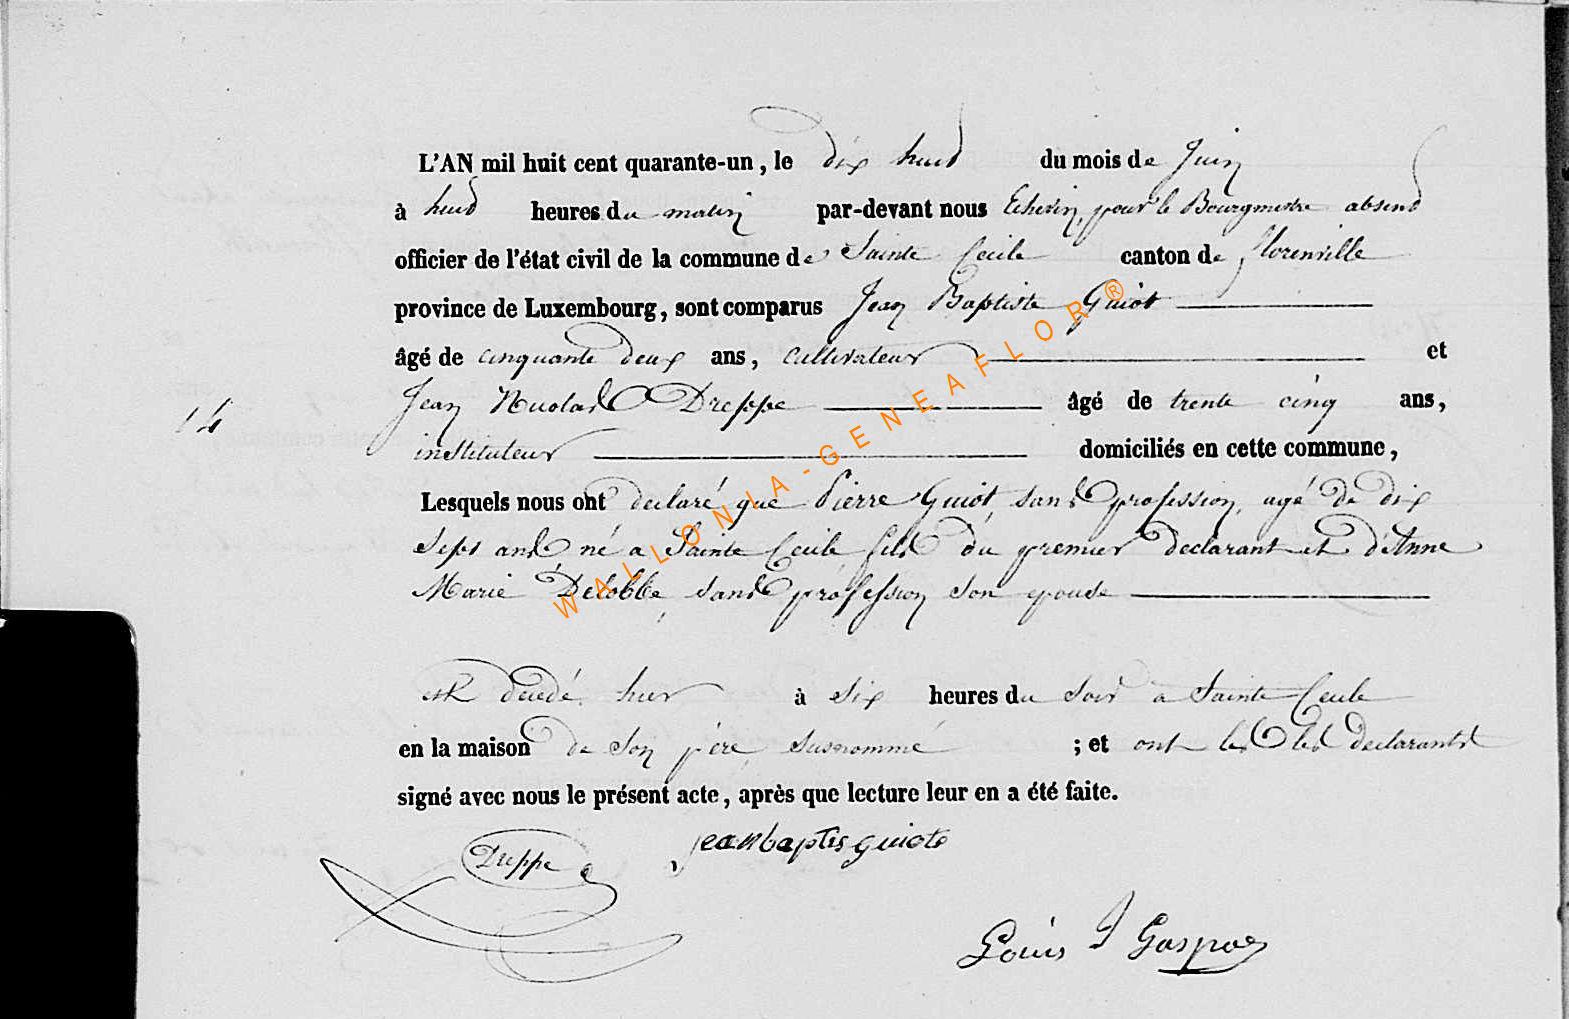 L'AN mil huit cent quarante-un, le dix huit du mois de Juin
à huit heures du matin par-devant nous Echevin, pour le Bourgmestre absent
officier de l'état civil de la commune de Sainte Cecile canton de florenville
province de Luxembourg, sont comparus Jean Baptiste Guiot
âgé de cinquante deux ans, cultivateur et
Jean Nicolas Dreppe âgé de trente cinq ans,
14
instituteur domiciliés en cette commune,
Lesquels nous ont declaré que Pierre Guiot, sans profession, agé de dix
sept ans né a Sainte Cecile fils du premier declarant et d'Anne
Marie Delobbe, sans profession son epouse
est decedé hier à six heures du soir a Sainte Cecile
en la maison de son père susnommé ; et ont les declarants
signé avec nous le présent acte, après que lecture leur en a été faite.
Dreppe jeanbaptis guiots
Louis J Gaspar
WALLONIA-GENEAFLOR ®